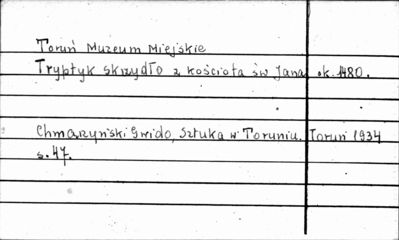 Toruń Muzeum Miejskie
Tryptyk skrzydło z kościoła św Jana ok. 1480.
Chmarzyński Gwido, Sztuka w Toruniu. Toruń 1934
s. 47.